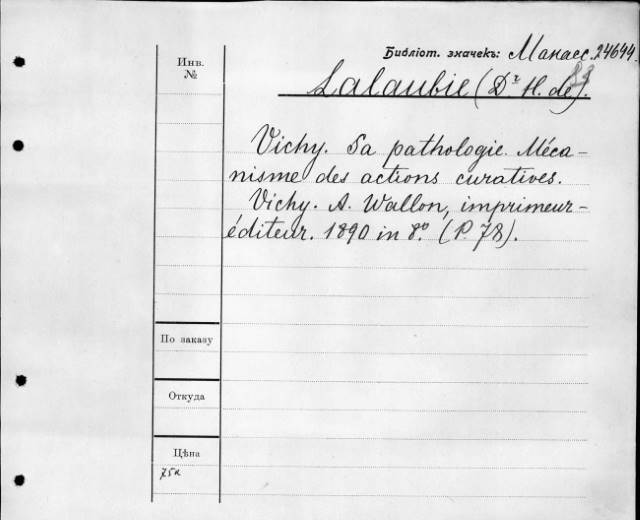 Инв.
№
Библіот. значекъ: Манасс. 24644.
83
Lalaubie (Dr H. de).
Vichy. Sa pathologie. Méca-
nisme des actions curatives.
Vichy. A. Wallon, imprimeur-
éditeur. 1890 in 8º. (P. 78).
По заказу
Откуда
Цѣна
75к